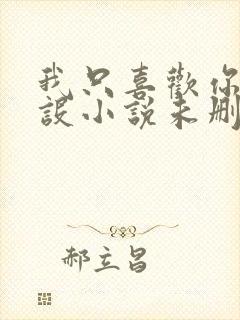 我只喜歡你
設小說未刪
郝立昌